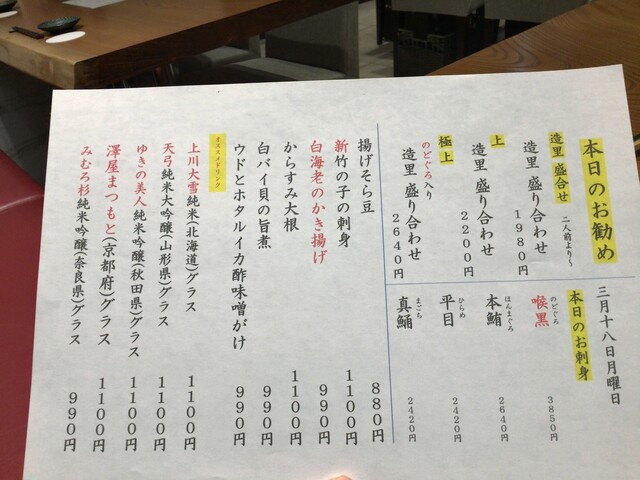 本日のお勧め
三月十八日月曜日
造里 盛合せ 二人前より～
造里 盛り合わせ 1980円
上
造里 盛り合わせ 2200円
極上
のどぐろ入り
造里 盛り合わせ 2640円
本日のお刺身
のどぐろ
喉黒 3850円
ほんまぐろ
本鮪 2640円
ひらめ
平目 2420円
まごち
真鯒 2420円
揚げそら豆 880円
新竹の子の刺身 1100円
白海老のかき揚げ 990円
からすみ大根 1100円
白バイ貝の旨煮 990円
ウドとホタルイカ酢味噌がけ 990円
オススメドリンク
上川大雪純米(北海道)グラス 1100円
天弓純米大吟醸(山形県)グラス 1100円
ゆきの美人純米吟醸(秋田県)グラス 1100円
澤屋まつもと(京都府)グラス 1100円
みむろ杉純米吟醸(奈良県)グラス 990円